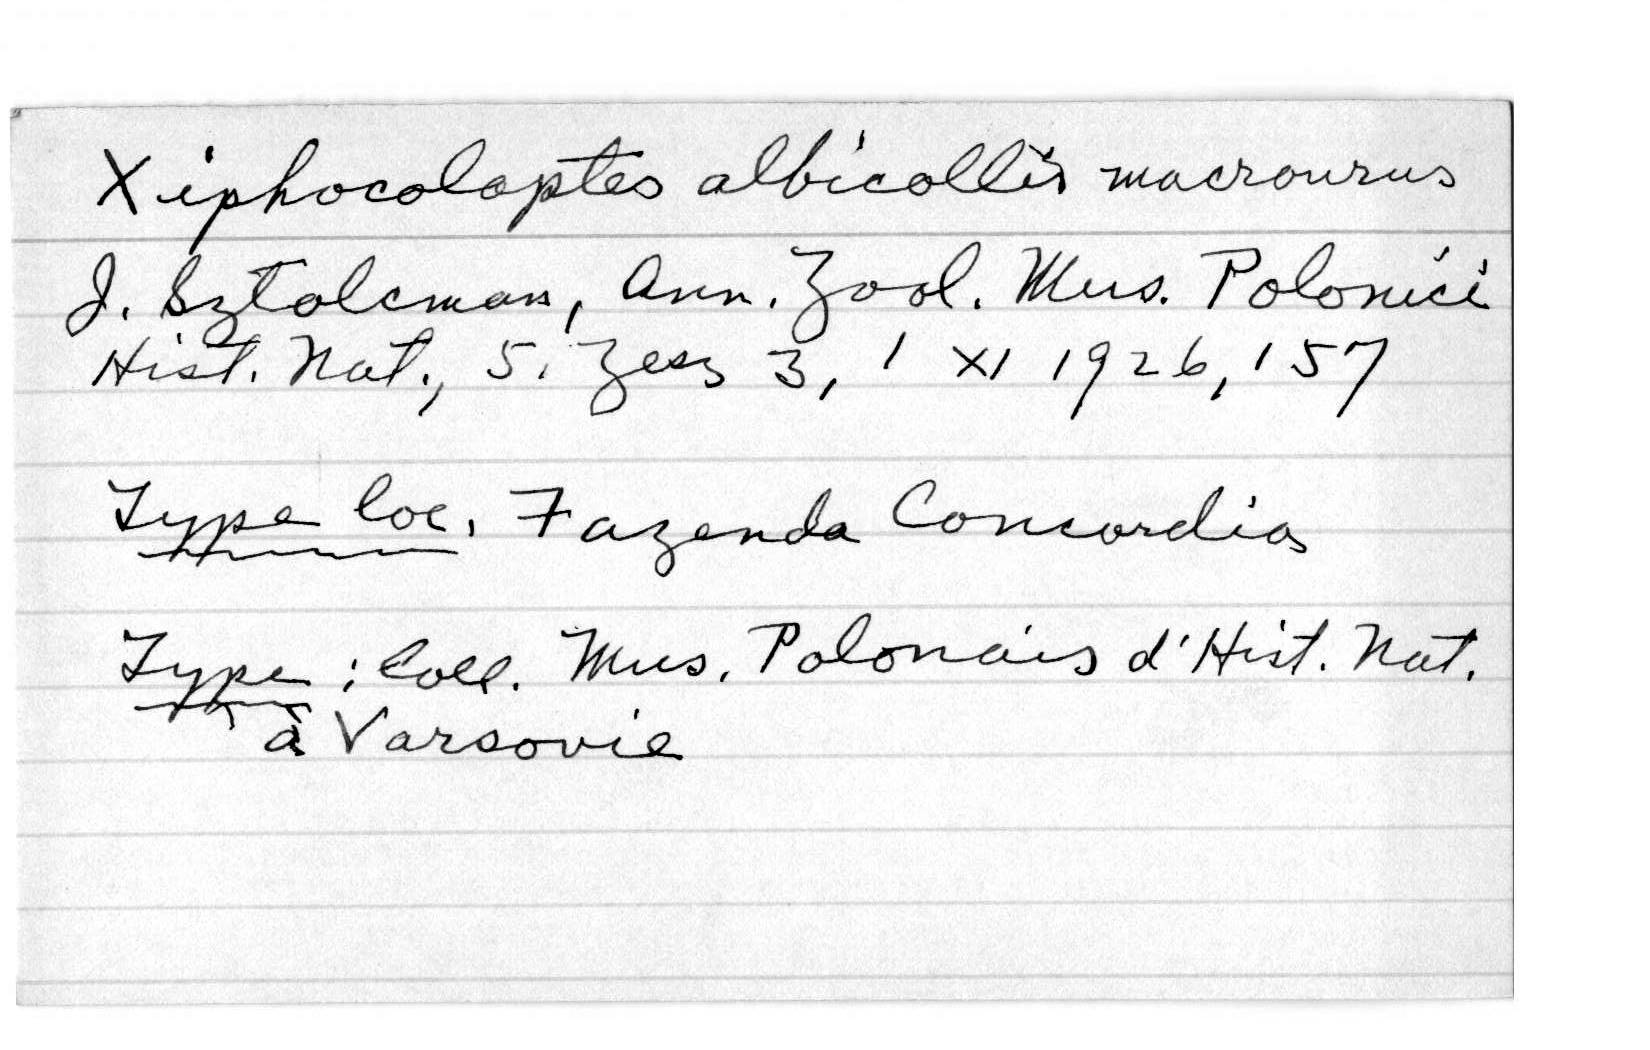 Xiphocolaptes albicollis macrourus
J. Sztolcman, Ann. Zool. Mus. Polonici
Hist. Nat., 5, Zesz 3, 1 XI 1926, 157
Type loc. Fazenda Concordia
Type : Coll. Mus. Polonais d'Hist. Nat.
à Varsovie